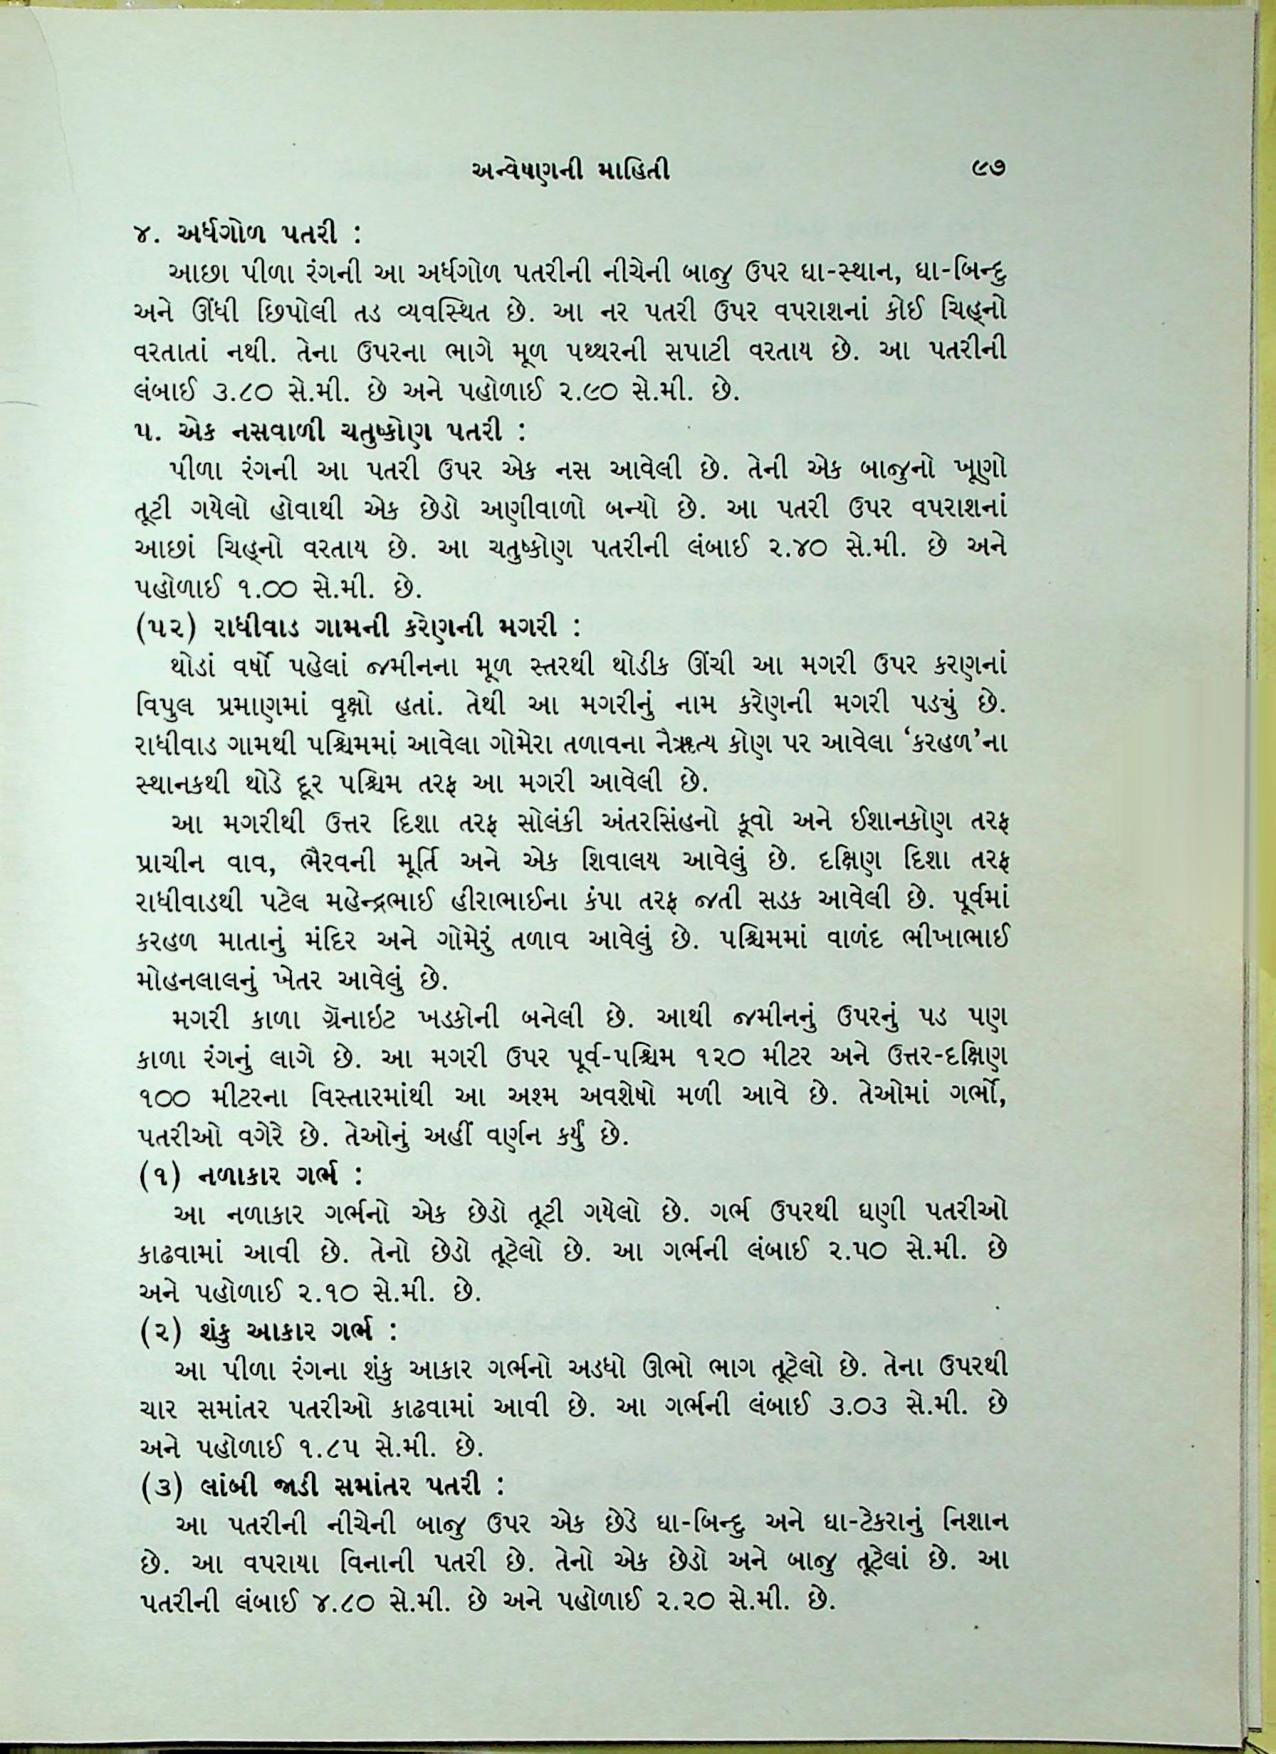 અન્વેષણની માહિતી ૯૭
૪. અર્ધગોળ પતરી :
આછા પીળા રંગની આ અર્ધગોળ પતરીની નીચેની બાજુ ઉપર ઘા-સ્થાન, ઘા-બિન્દુ
અને ઊંધી છિપોલી તડ વ્યવસ્થિત છે. આ નર પતરી ઉપર વપરાશનાં કોઈ ચિહ્નો
વરતાતાં નથી. તેના ઉપરના ભાગે મૂળ પથ્થરની સપાટી વરતાય છે. આ પતરીની
લંબાઈ ૩.૮૦ સે.મી. છે અને પહોળાઈ ૨.૯૦ સે.મી. છે.
૫. એક નસવાળી ચતુષ્કોણ પતરી :
પીળા રંગની આ પતરી ઉપર એક નસ આવેલી છે. તેની એક બાજુનો ખૂણો
તૂટી ગયેલો હોવાથી એક છેડો અણીવાળો બન્યો છે. આ પતરી ઉપર વપરાશનાં
આછાં ચિહ્નો વરતાય છે. આ ચતુષ્કોણ પતરીની લંબાઈ ૨.૪૦ સે.મી. છે અને
પહોળાઈ ૧.૦૦ સે.મી. છે.
(૫૨) રાધીવાડ ગામની કરેણની મગરી :
થોડાં વર્ષો પહેલાં જમીનના મૂળ સ્તરથી થોડીક ઊંચી આ મગરી ઉપર કરણનાં
વિપુલ પ્રમાણમાં વૃક્ષો હતાં. તેથી આ મગરીનું નામ કરેણની મગરી પડ્યું છે.
રાધીવાડ ગામથી પશ્ચિમમાં આવેલા ગોમેરા તળાવના નૈઋત્ય કોણ પર આવેલા ‘કરહળ’ના
સ્થાનકથી થોડે દૂર પશ્ચિમ તરફ આ મગરી આવેલી છે.
આ મગરીથી ઉત્તર દિશા તરફ સોલંકી અંતરસિંહનો કૂવો અને ઈશાનકોણ તરફ
પ્રાચીન વાવ, ભૈરવની મૂર્તિ અને એક શિવાલય આવેલું છે. દક્ષિણ દિશા તરફ
રાધીવાડથી પટેલ મહેન્દ્રભાઈ હીરાભાઈના કંપા તરફ જતી સડક આવેલી છે. પૂર્વમાં
કરહળ માતાનું મંદિર અને ગોમેરું તળાવ આવેલું છે. પશ્ચિમમાં વાળંદ ભીખાભાઈ
મોહનલાલનું ખેતર આવેલું છે.
મગરી કાળા ગ્રૅનાઇટ ખડકોની બનેલી છે. આથી જમીનનું ઉપરનું પડ પણ
કાળા રંગનું લાગે છે. આ મગરી ઉપર પૂર્વ-પશ્ચિમ ૧૨૦ મીટર અને ઉત્તર-દક્ષિણ
૧૦૦ મીટરના વિસ્તારમાંથી આ અશ્મ અવશેષો મળી આવે છે. તેઓમાં ગર્ભો,
પતરીઓ વગેરે છે. તેઓનું અહીં વર્ણન કર્યું છે.
(૧) નળાકાર ગર્ભ :
આ નળાકાર ગર્ભનો એક છેડો તૂટી ગયેલો છે. ગર્ભ ઉપરથી ઘણી પતરીઓ
કાઢવામાં આવી છે. તેનો છેડો તૂટેલો છે. આ ગર્ભની લંબાઈ ૨.૫૦ સે.મી. છે
અને પહોળાઈ ૨.૧૦ સે.મી. છે.
(૨) શંકુ આકાર ગર્ભ :
આ પીળા રંગના શંકુ આકાર ગર્ભનો અડધો ઊભો ભાગ તૂટેલો છે. તેના ઉપરથી
ચાર સમાંતર પતરીઓ કાઢવામાં આવી છે. આ ગર્ભની લંબાઈ ૩.૦૩ સે.મી. છે
અને પહોળાઈ ૧.૮૫ સે.મી. છે.
(૩) લાંબી જાડી સમાંતર પતરી :
આ પતરીની નીચેની બાજુ ઉપર એક છેડે ઘા-બિન્દુ અને ઘા-ટેકરાનું નિશાન
છે. આ વપરાયા વિનાની પતરી છે. તેનો એક છેડો અને બાજુ તૂટેલાં છે. આ
પતરીની લંબાઈ ૪.૮૦ સે.મી. છે અને પહોળાઈ ૨.૨૦ સે.મી. છે.